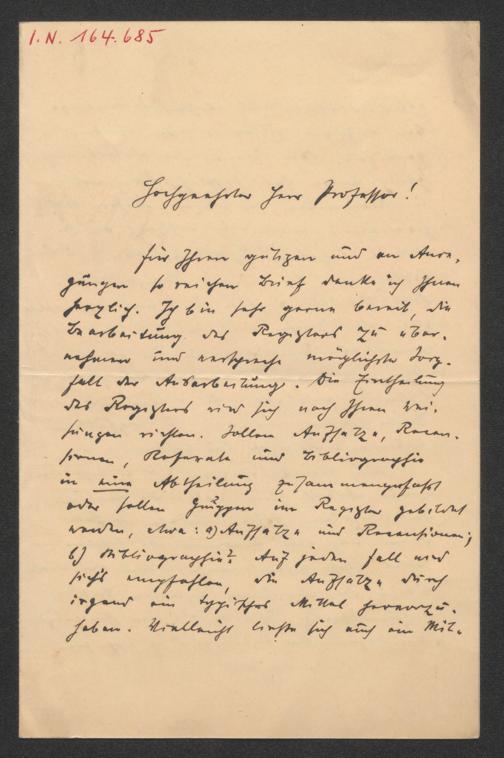 I.N. 164.685
Hochgeehrter Herr Professor!
Für Ihren gütigen und an Anre-
gungen so reichen Brief danke ich Ihnen
herzlich. Ich bin sehr gerne bereit, die
Bearbeitung des Registers zu über-
nehmen und verspreche möglichste Sorg-
falt der Ausarbeitung. Die Eintheilung
des Registers wird sich nach Ihren Wei-
sungen richten. Sollen Aufsätze, Recen-
sionen, Referate und Bibliographie
in eine Abtheilung zusammengefasst
oder sollen Gruppen im Register gebildet
werden, etwa: a) Aufsätze und Recensionen;
b) Bibliographie? Auf jeden Fall wird
sich's empfehlen, die Aufsätze durch
irgend ein typisches Mittel hervorzu-
heben. Vielleicht ließe sich auch ein Mit-